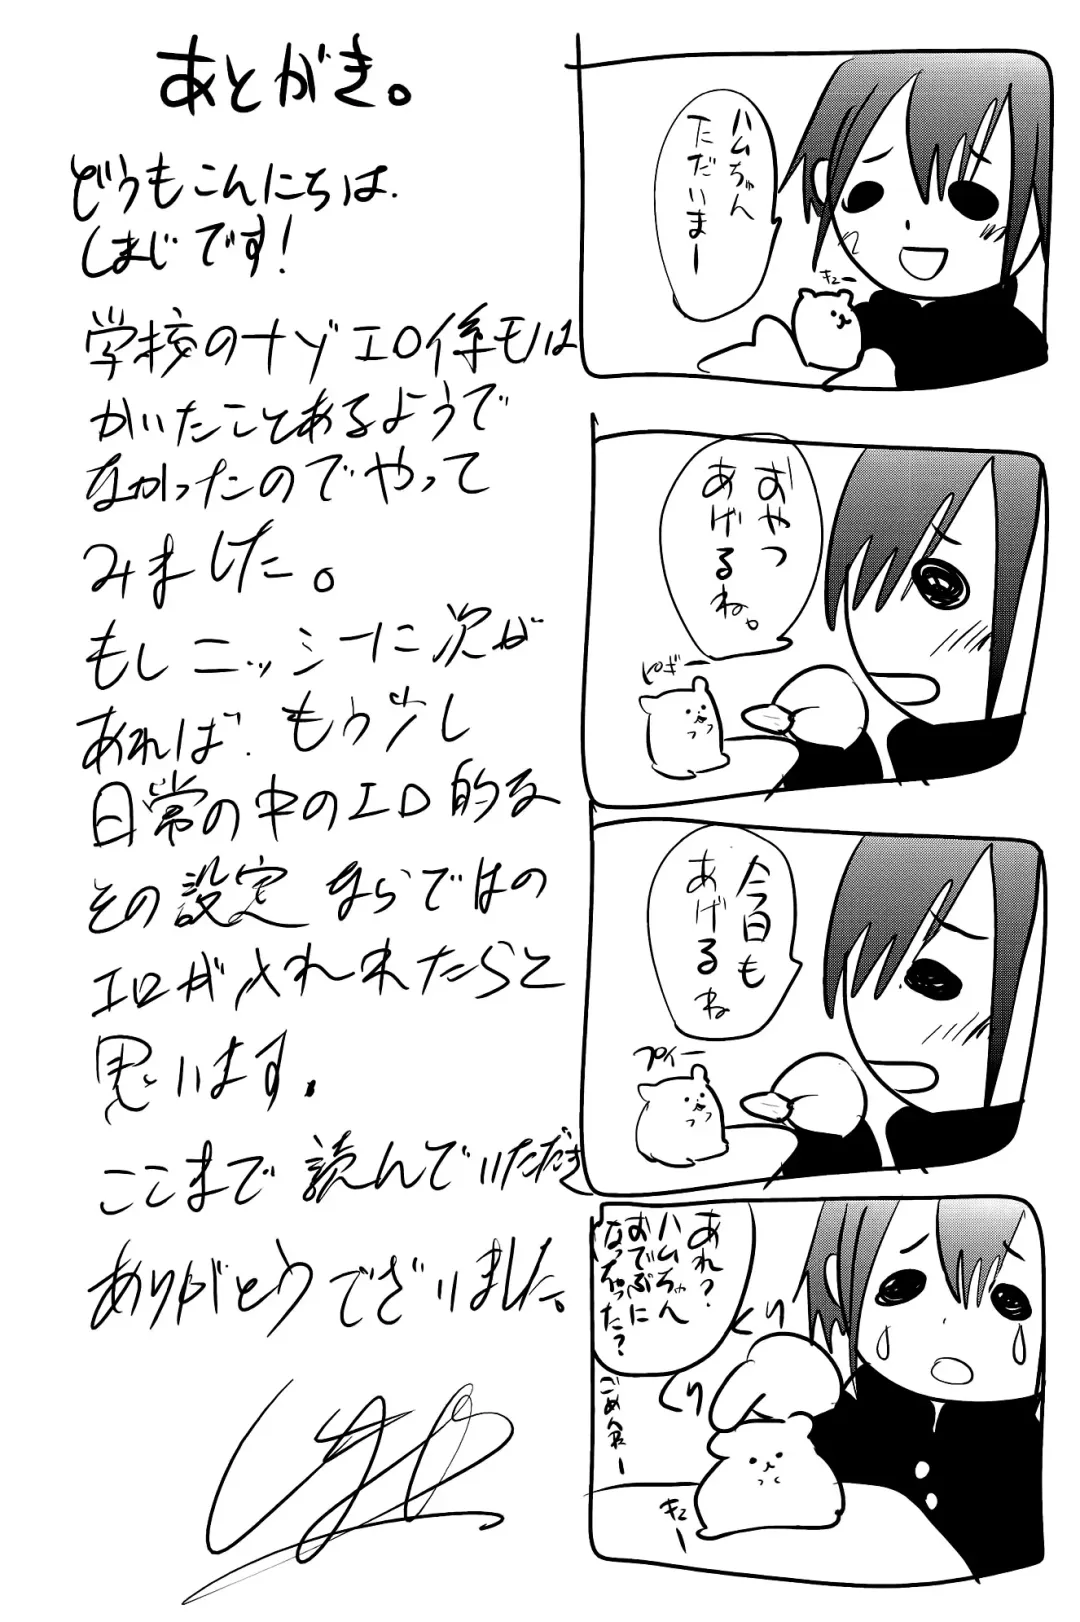 あとがき。
どうもこんにちは.
しまじです!
学校のナゾエロ係モノは
かいたことあるようで
なかったのでやって
みました。
もしニッシーに次が
あれば、もう少し
日常の中のエロ的な
その設定ならではの
エロが入れれたらと
思います.
ここまで読んでいただき
ありがとうございました。
ハムちゃん
ただいまー
キュー
おやつ
あげるね。
ピギー
今日も
あげるね
プイー
あれ?
ハムちゃん
おでぶに
なっちゃった?
ごめんねー
くり
くり
キュー